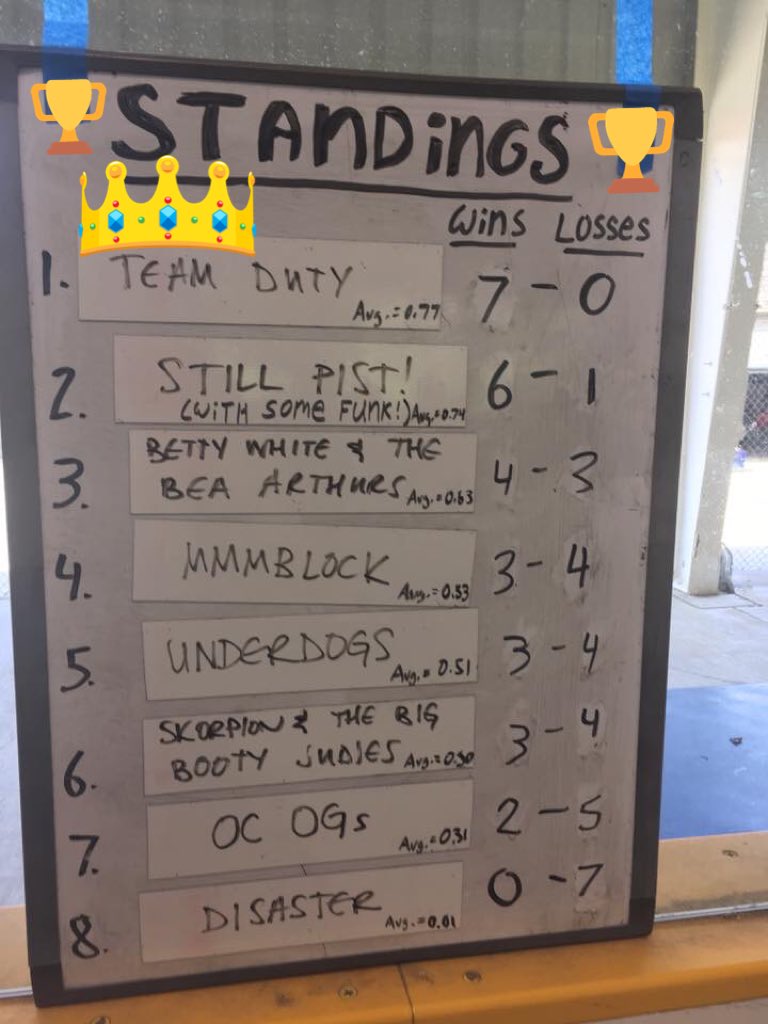 STANDINGS
Wins Losses
1. TEAM DUTY 7 - 0
Avg.=0.77
2. STILL PIST! 6 - 1
(WITH SOME FUNK!) Avg.=0.74
BETTY WHITE & THE
3. BEA ARTHURS Avg.=0.63 4 - 3
4. MMMBLOCK 3 - 4
Avg.=0.53
5. UNDERDOGS 3 - 4
Avg.=0.51
SKORPION & THE BIG
6. BOOTY JUDIES Avg.=0.50 3 - 4
7. OC OGs 2 - 5
Avg.=0.31
8. DISASTER 0 - 7
Avg.=0.01